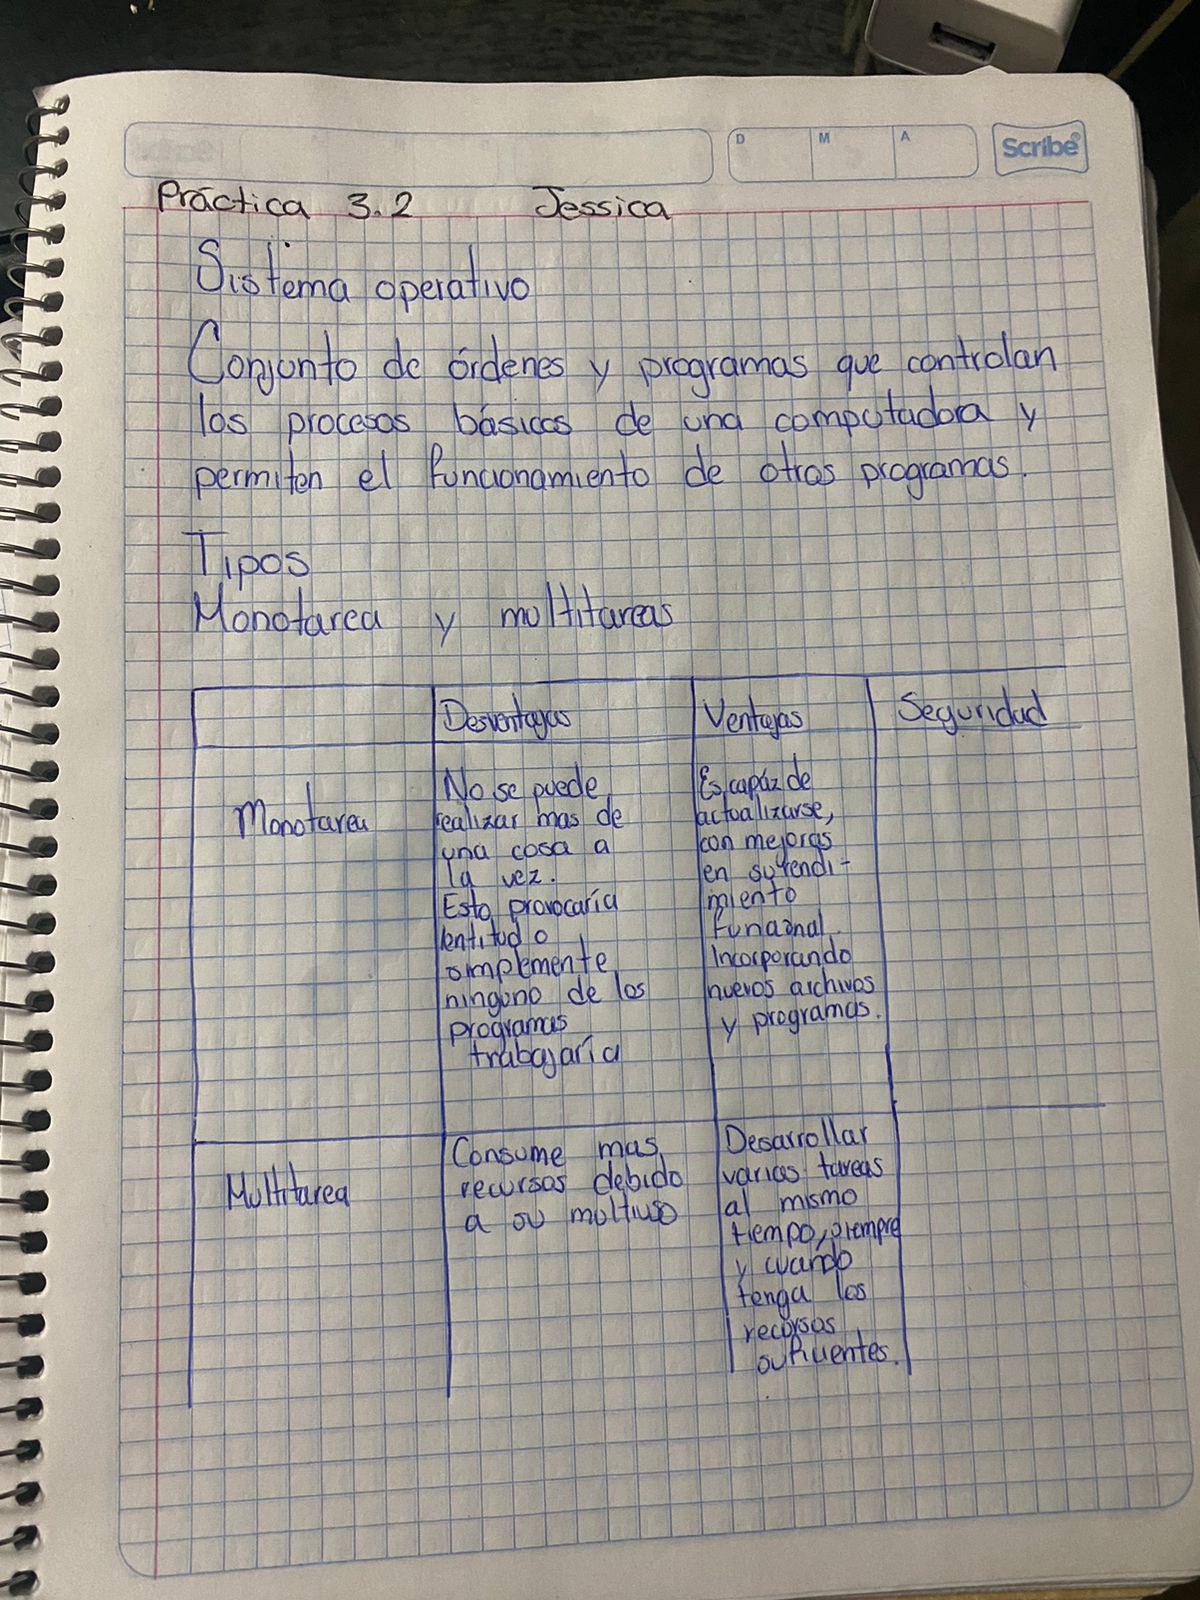 D M A Scribe
Práctica 3.2 Jessica
Sistema operativo
Conjunto de órdenes y programas que controlan
los procesos básicos de una computadora y
permiten el funcionamiento de otros programas.
Tipos
Monotarea y multitareas
Desventajas Ventajas Seguridad
Monotarea
No se puede
realizar mas de
una cosa a
la vez.
Esto provocaría
lentitud o
simplemente
ninguno de los
programas
trabajaría
Es capáz de
actualizarse,
con mejoras
en su rendi-
miento
funcional.
Incorporando
nuevos archivos
y programas.
Multitarea
Consume mas
recursos debido
a su multiuso
Desarrollar
varias tareas
al mismo
tiempo, siempre
y cuando
tenga los
recursos
suficientes.